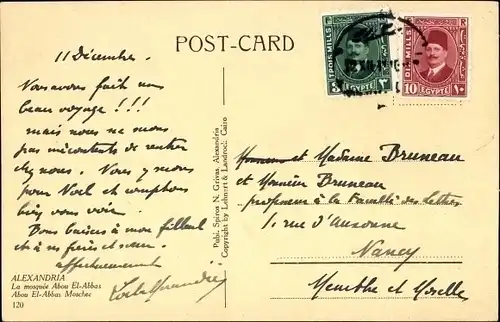 POST-CARD
11 Décembre.
Nous avons fait un
beau voyage !!!
mais nous ne sommes
pas mécontents de rentrer
chez nous. Nous y serons
pour Noël et comptons
bien vous voir.
Bons baisers à mon filleul
et à ses frères et sœur.
affectueusement
ALEXANDRIA
La mosquée Abou El-Abbas
Abou El-Abbas Moschee
120
Publ. Spiros N. Grivas, Alexandria
Copyright by Lehnert & Landrock, Cairo
TROIS MILLS
3 EGYPTE ٣
DIX MILLS
10 EGYPTE ١٠
et Madame Bruneau
et Monsieur Bruneau
professeur à la Faculté des lettres
1. rue d'Ausonne
Nancy
Meurthe et Moselle